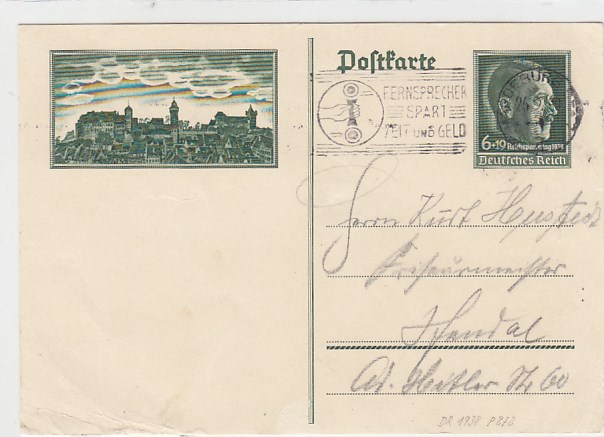 Postkarte
FERNSPRECHER
SPART
ZEIT UND GELD
6+19 Reichsparteitag 1938
Deutsches Reich
Herrn Kurt
Friseurmeister
Stendal
Ad. Hitler Str. 60
DR 1938 P 273